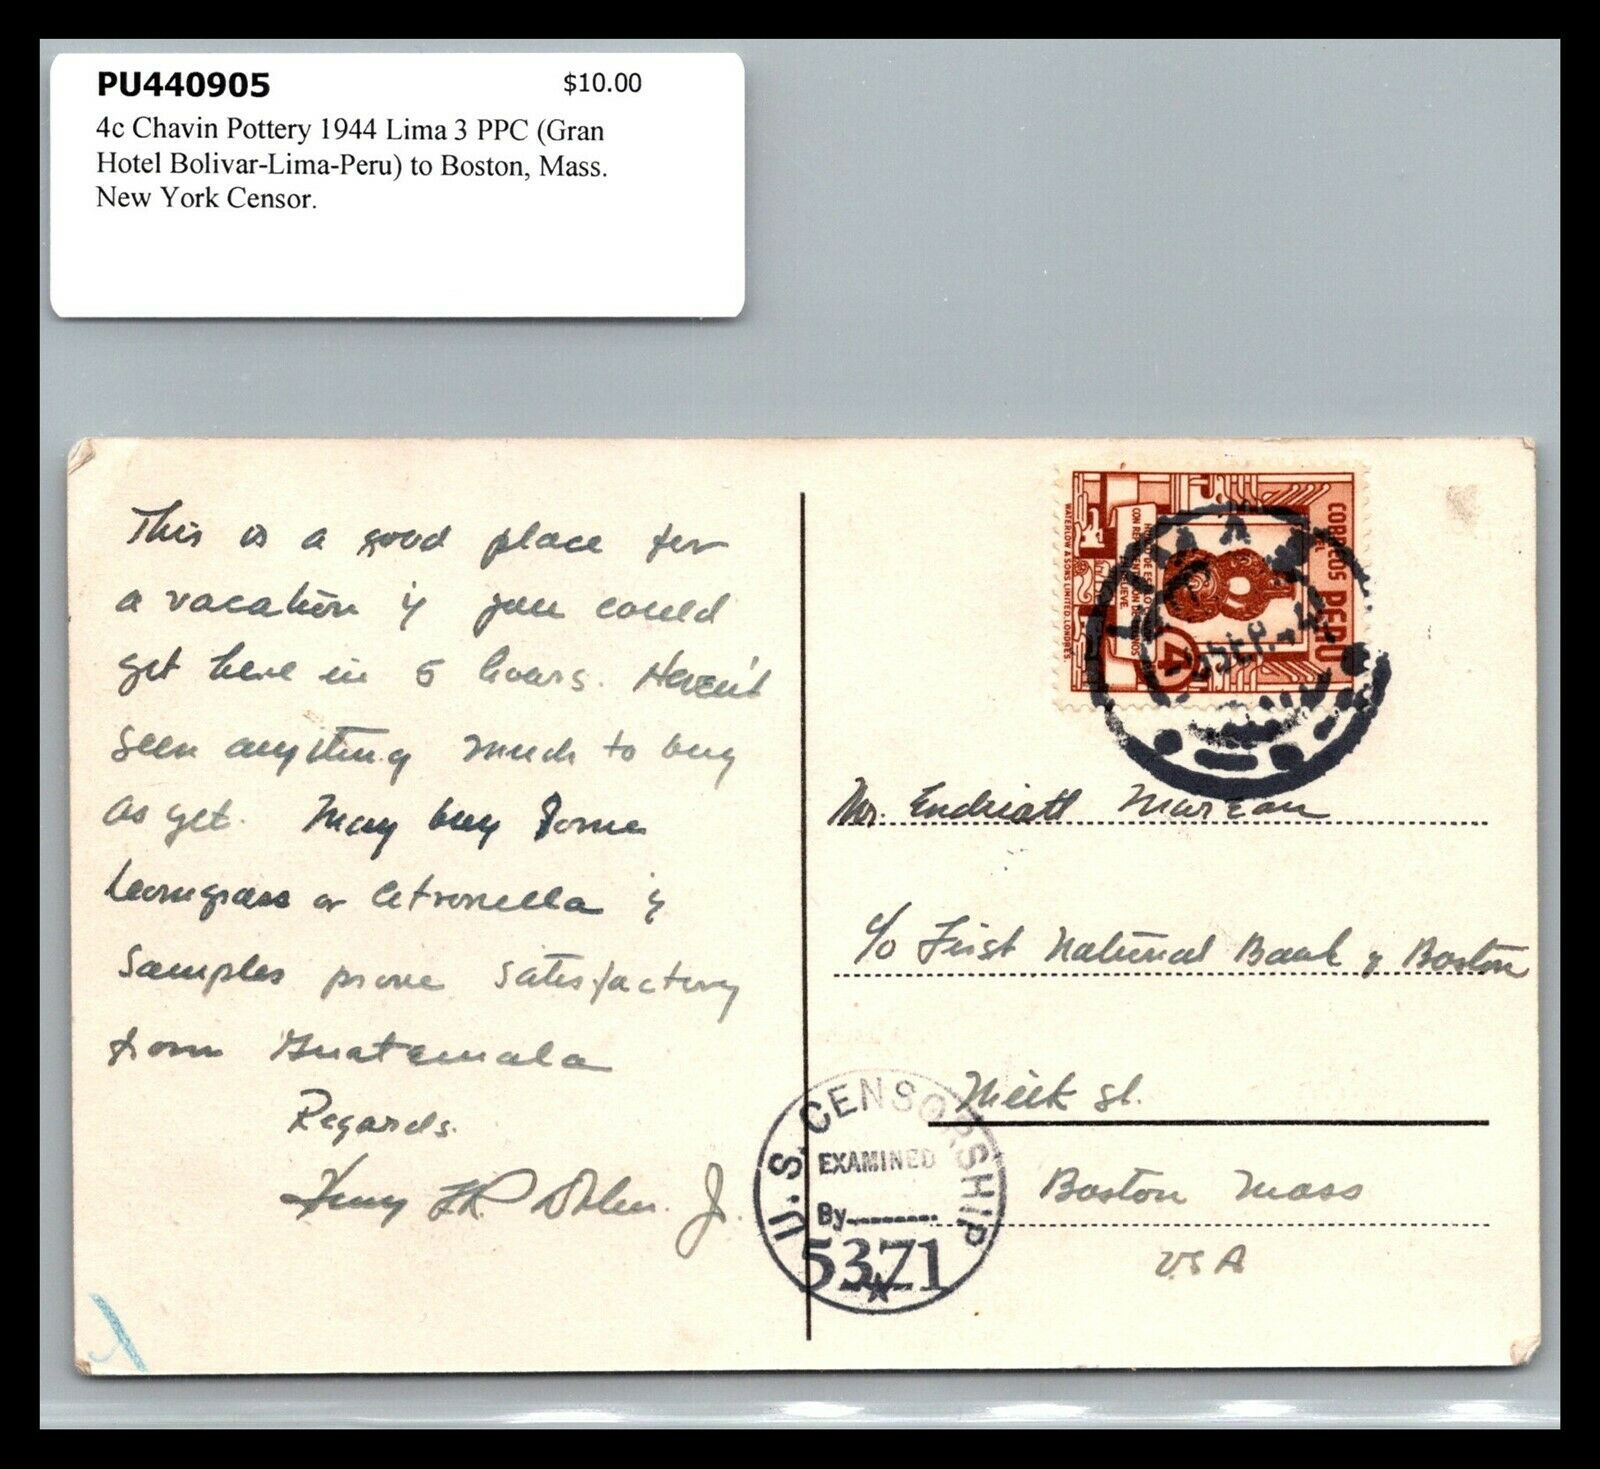 PU440905 $10.00
4c Chavin Pottery 1944 Lima 3 PPC (Gran
Hotel Bolivar-Lima-Peru) to Boston, Mass.
New York Censor.
This is a good place for
a vacation if you could
get here in 5 hours. Haven't
seen anything much to buy
as yet. May buy some
lemongrass or citronella if
samples prove satisfactory
from Guatemala
Regards.
Henry Jr.
CORREOS DEL PERU
4
WATERLOW & SONS LIMITED, LONDRES.
LIMA
SEP.
Mr.
c/o First National Bank of Boston
Milk St.
Boston Mass
USA
U.S. CENSORSHIP
EXAMINED
By
5371